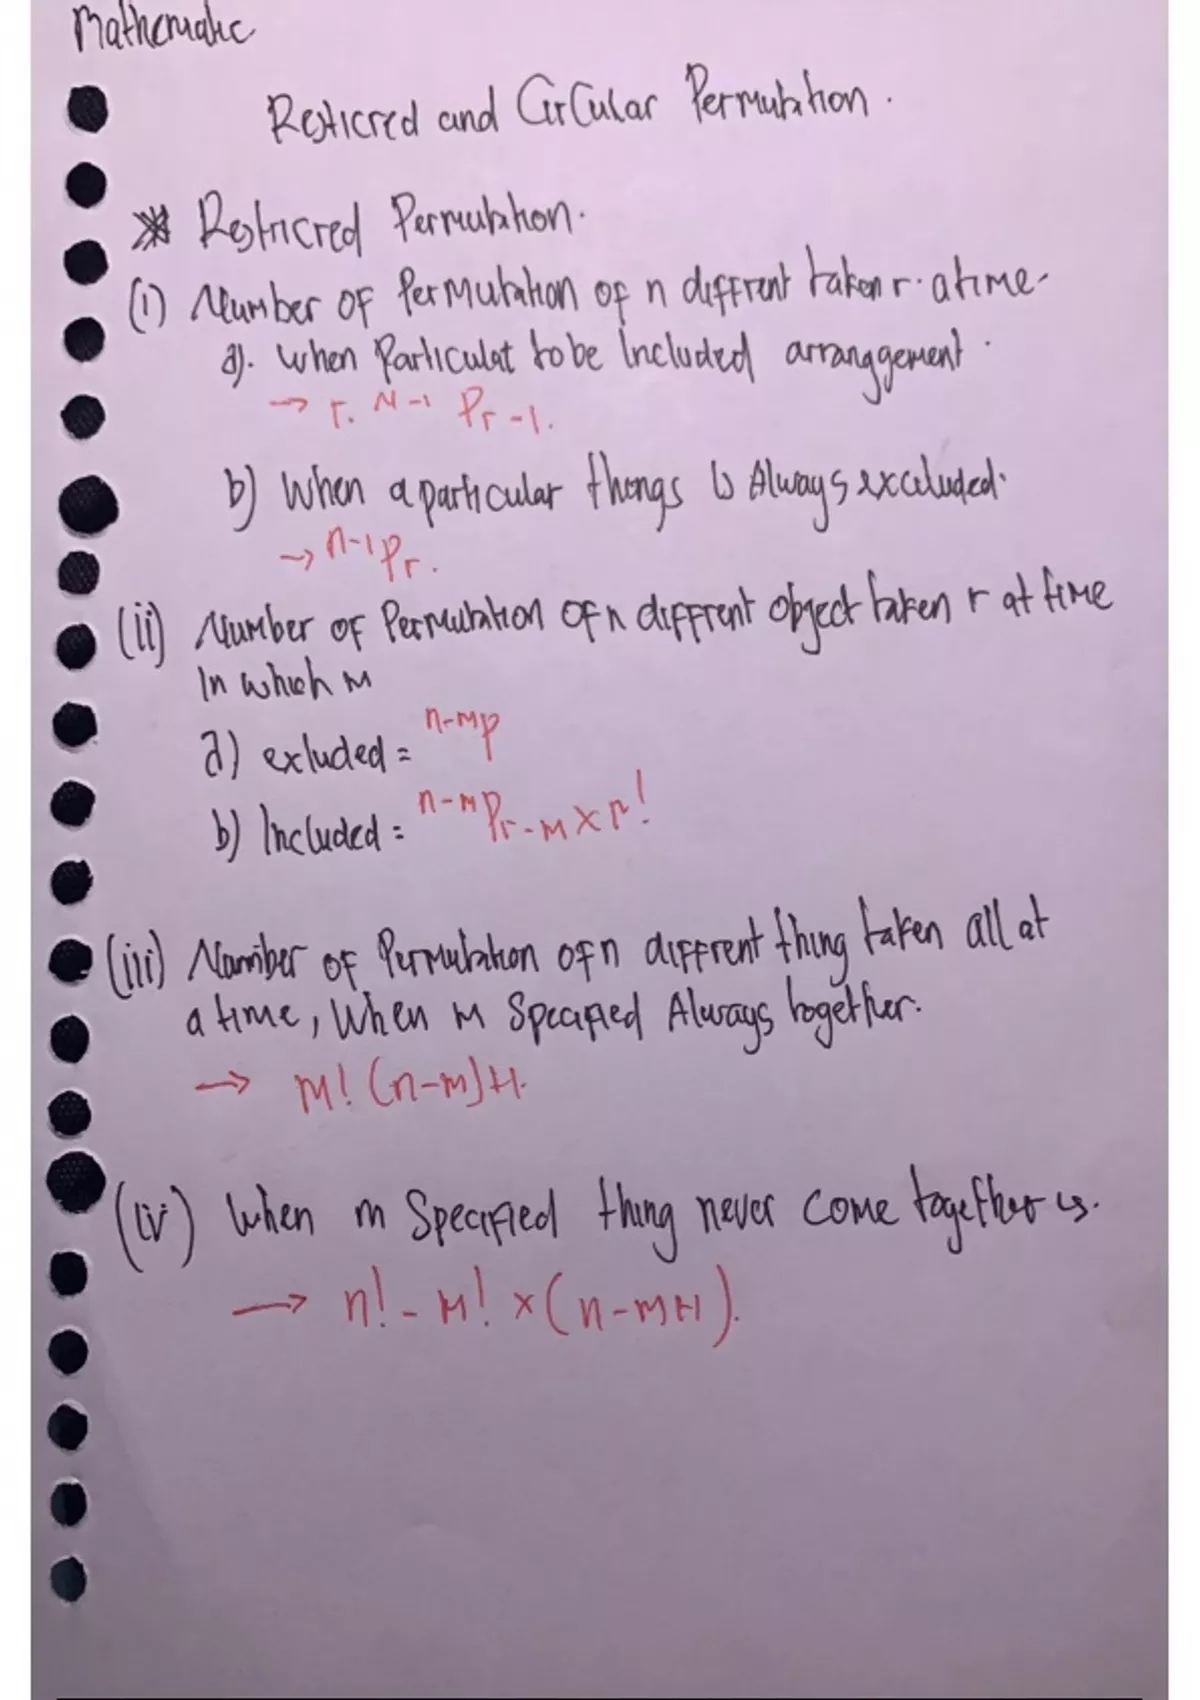 Mathematic
Resticred and Circular Permutation.
* Restricred Permutation.
(i) Number of Permutation of n diffrent taken r. a time.
a). when Particulat to be Included arranggement.
→ r. ᴺ⁻¹ Pr-1.
b) When a particular thongs is Always excluded.
→ ⁿ⁻¹Pr.
(ii) Number of Permutation of n diffrent object taken r at time
In which m
a) exluded = ⁿ⁻ᵐp
b) Included = ⁿ⁻ᵐPr-m × r!
(iii) Number of Permutation of n diffrent thing taken all at
a time, When m Specified Always together.
→ m! (n-m)+1.
(iv) When m Specified thing never come together is.
→ n! - m! × (n-m+1).